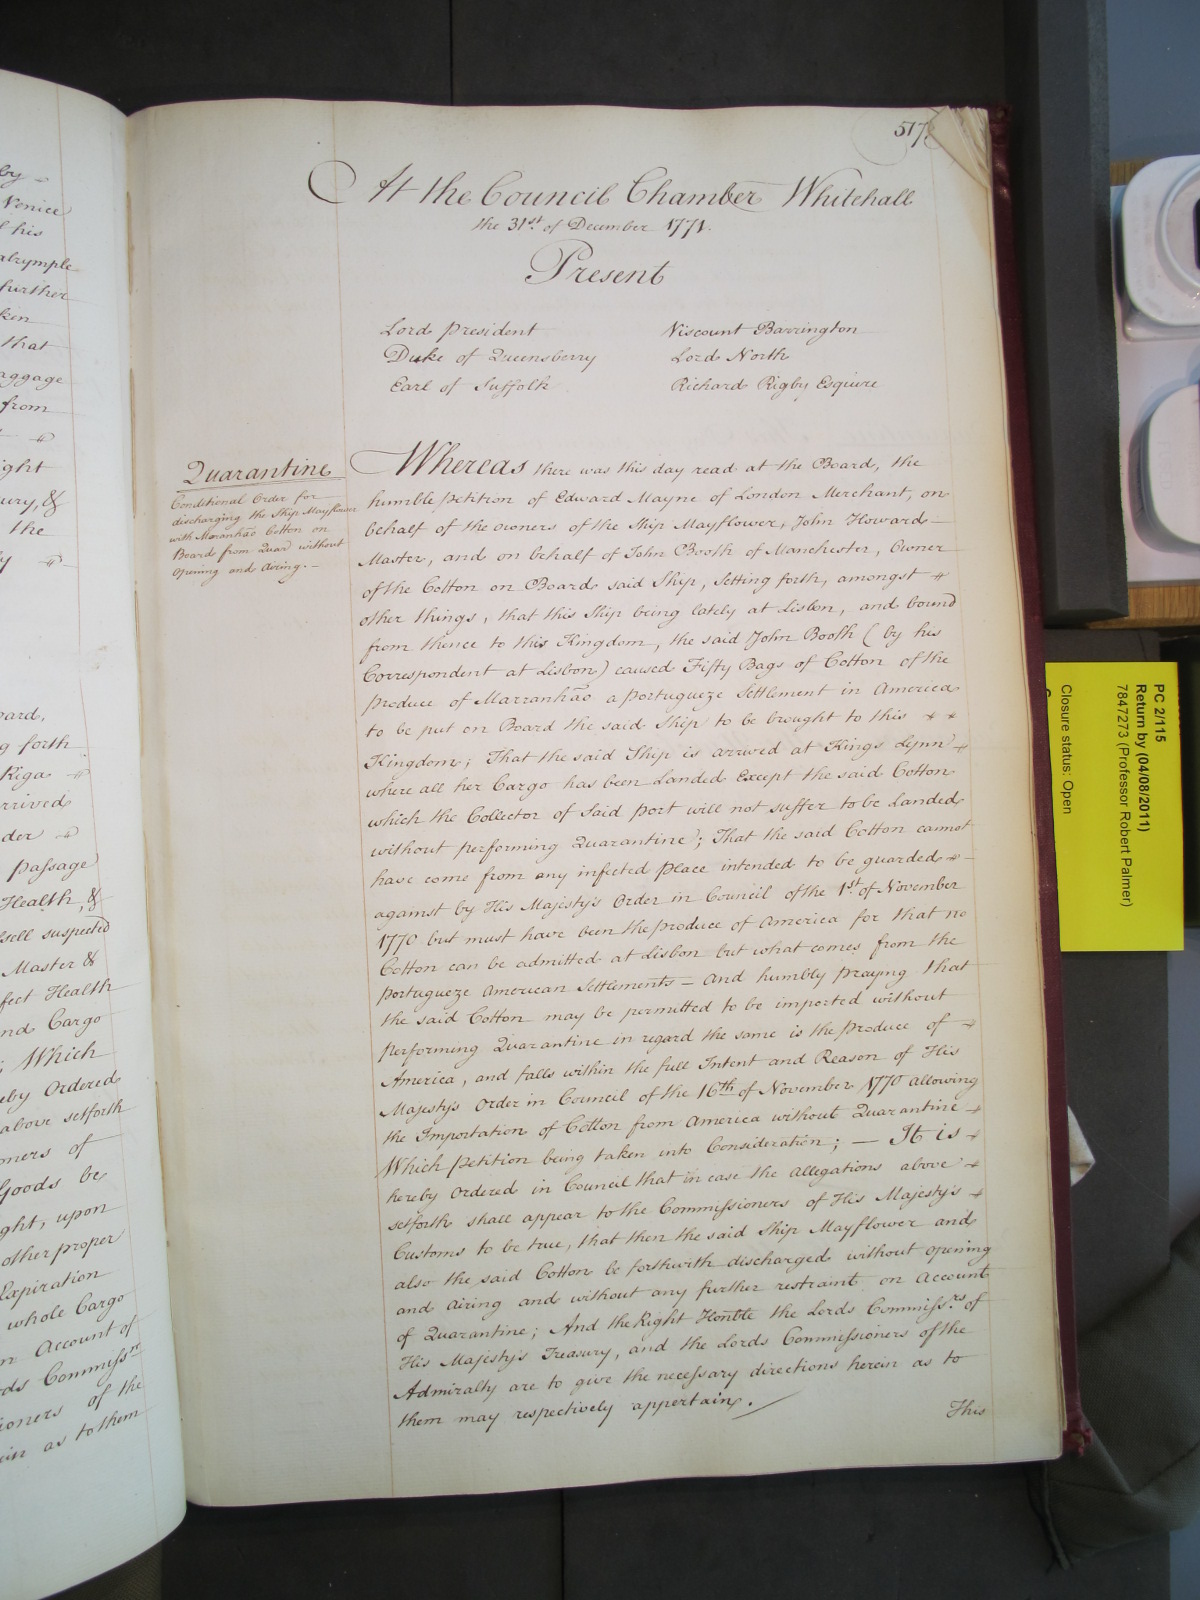 by
Venice
his
alrymple
further
ken
that
aggage
from
ight
ury, &
the
y
oard,
g forth
Riga
rrived
der
passage
Health, &
ssell suspected
Master &
fect Health
nd Cargo
; Which
eby Ordered
above setforth
oners of
Goods be
ght, upon
other proper
Expiration
whole Cargo
n Account of
ds Commissrs
ioners of the
ein as to them
517
At the Council Chamber Whitehall
the 31st of December 1771.
Present
Lord President
Duke of Queensberry
Earl of Suffolk
Viscount Barrington
Lord North
Richard Rigby Esquire
Quarantine
Conditional Order for
discharging the Ship Mayflower
with Maranhão Cotton on
Board from Quar without
opening and Airing.
Whereas there was this day read at the Board, the
humble Petition of Edward Mayne of London Merchant, on
behalf of the Owners of the Ship Mayflower, John Howard
Master, and on behalf of John Booth of Manchester, Owner
of the Cotton on Board said Ship, Setting forth, amongst
other things, that this Ship being lately at Lisbon, and bound
from thence to this Kingdom, the said John Booth (by his
Correspondent at Lisbon) caused Fifty Bags of Cotton of the
produce of Marranhão a Portugueze Settlement in America
to be put on Board the said Ship to be brought to this
Kingdom; That the said Ship is arrived at Kings Lynn
where all her Cargo has been Landed Except the said Cotton
which the Collector of said Port will not suffer to be Landed
without performing Quarantine; That the said Cotton cannot
have come from any infected Place intended to be guarded
against by His Majesty's Order in Council of the 1st of November
1770 but must have been the produce of America for that no
Cotton can be admitted at Lisbon but what comes from the
Portugueze American Settlements — And humbly praying that
the said Cotton may be permitted to be imported without
performing Quarantine in regard the same is the Produce of
America, and falls within the full Intent and Reason of His
Majesty's Order in Council of the 16th of November 1770 allowing
the Importation of Cotton from America without Quarantine
Which Petition being taken into Consideration; — It is
hereby Ordered in Council that in case the Allegations above
setforth shall appear to the Commissioners of His Majesty's
Customs to be true, that then the said Ship Mayflower and
also the said Cotton be forthwith discharged without opening
and Airing and without any further restraint on Account
of Quarantine; And the Right Honble the Lords Commissrs of
His Majesty's Treasury, and the Lords Commissioners of the
Admiralty are to give the necessary directions herein as to
them may respectively appertain.
This
PC 2/115
Return by (04/08/2011)
7847273 (Professor Robert Palmer)
Closure status: Open